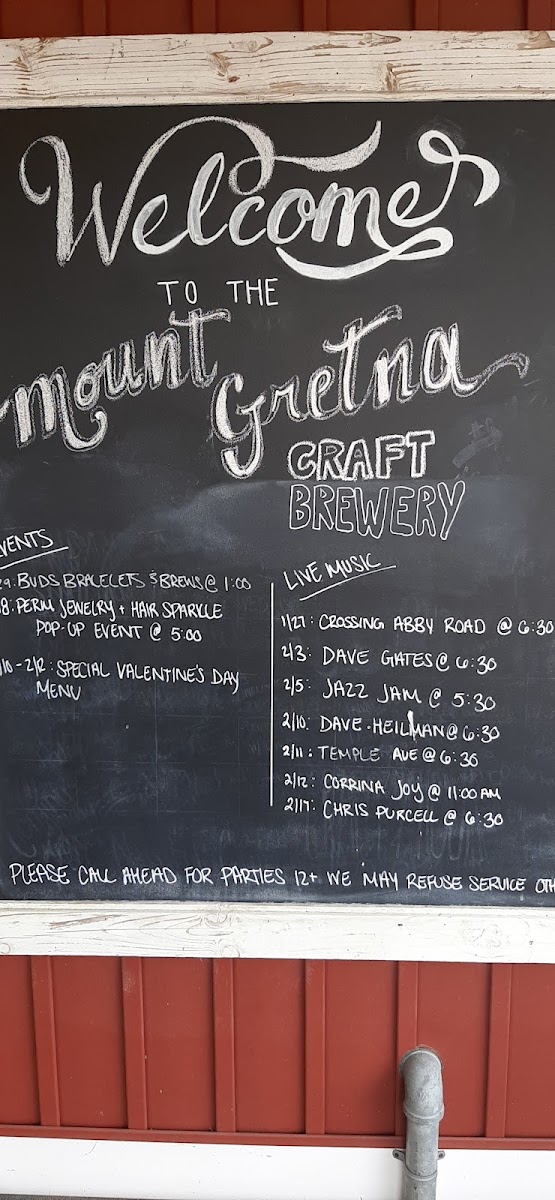 Welcome
TO THE
mount
Gretna
CRAFT
BREWERY
VENTS
29: BUDS BRALELETS & BREWS @ 1:00
8: PERM JEWELRY + HAIR SPARKLE
POP-UP EVENT @ 5:00
/10 - 2/12: SPECIAL VALENTINE'S DAY
MENU
LIVE MUSIC
1/27: CROSSING ABBY ROAD @ 6:30
2/3: DAVE GATES @ 6:30
2/5: JAZZ JAM @ 5:30
2/10: DAVE HEILMAN @ 6:30
2/11: TEMPLE AVE @ 6:30
2/12: CORRINA JOY @ 11:00 AM
2/17: CHRIS PURCELL @ 6:30
PLEASE CALL AHEAD FOR PARTIES 12+ WE MAY REFUSE SERVICE OTH